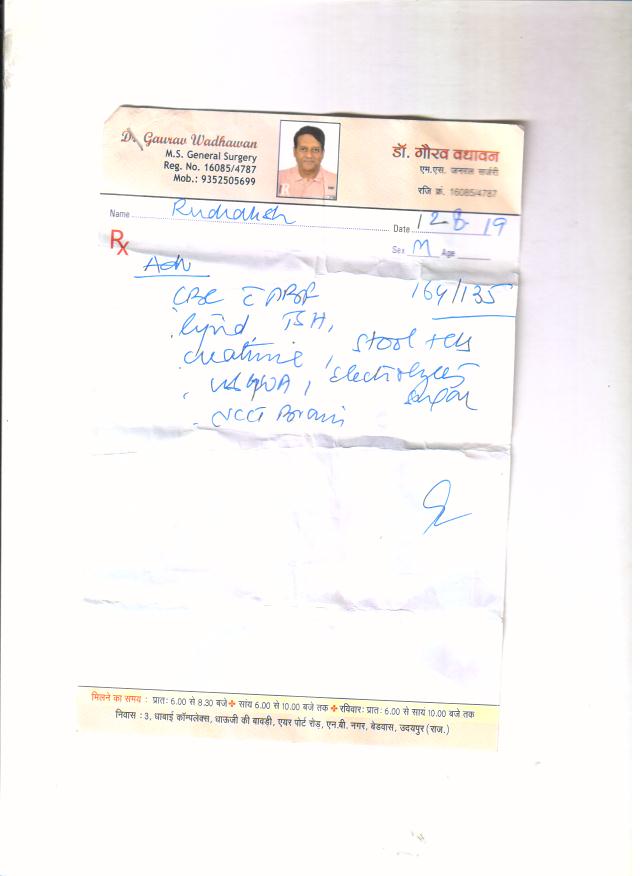 Dr. Gaurav Wadhawan
M.S. General Surgery
Reg. No. 16085/4787
Mob.: 9352505699
डॉ. गौरव वधावन
एम.एस. जनरल सर्जरी
रजि क्रं. 16085/4787
Name Rudraksh Date 12-8-19
Rx Sex M Age
Adv
CBC c PBF 164/135
lipid, TSH,
creatinine, stool test
USG W/A, Electrolytes
sugar
NCCT Brain
मिलने का समय : प्रातः 6.00 से 8.30 बजे सांय 6.00 से 10.00 बजे तक रविवारः प्रातः 6.00 से सायं 10.00 बजे तक
निवास : 3, धाबाई कॉम्पलेक्स, धाऊजी की बावड़ी, एयर पोर्ट रोड़, एन.बी. नगर, बेडवास, उदयपुर (राज.)